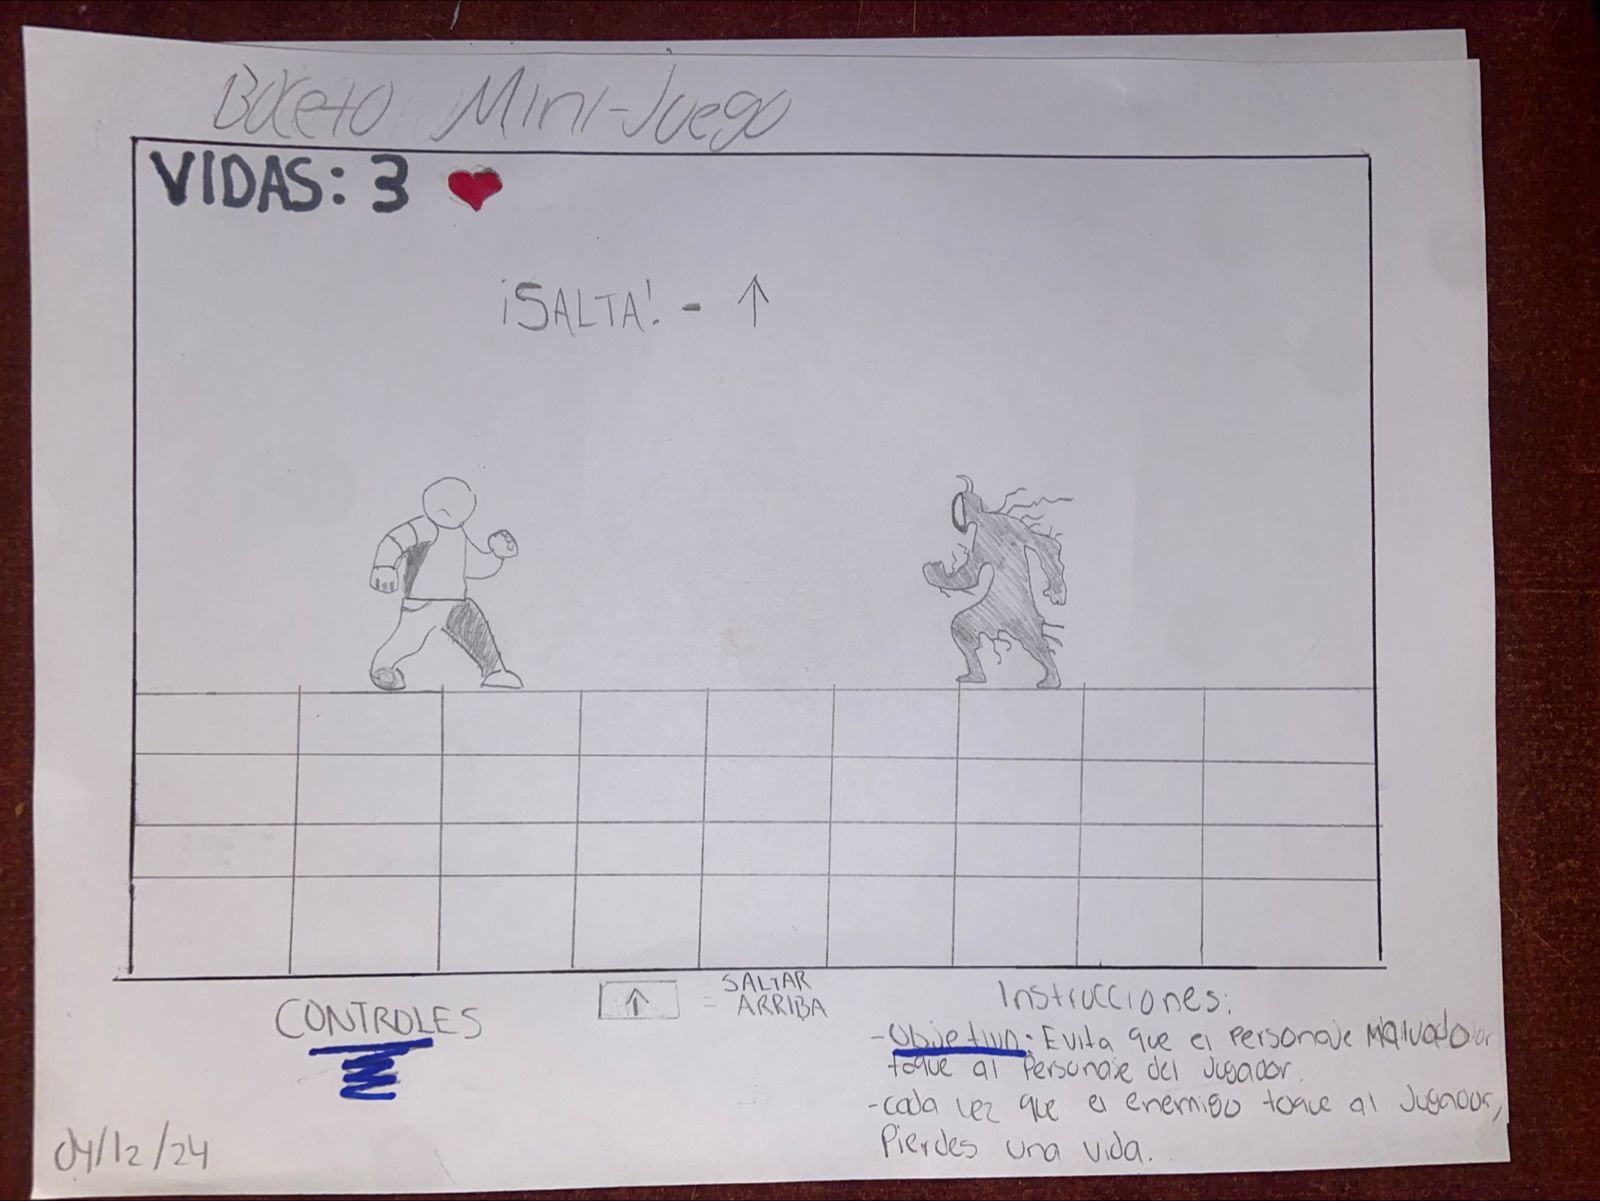 Boceto Mini-Juego
VIDAS: 3
¡SALTA! - ↑
CONTROLES
↑ = SALTAR
ARRIBA
Instrucciones:
- Objetivo: Evita que el Personaje Malvado
toque al Personaje del Jugador.
- cada vez que el enemigo toque al Jugador,
Pierdes una vida.
04/12/24